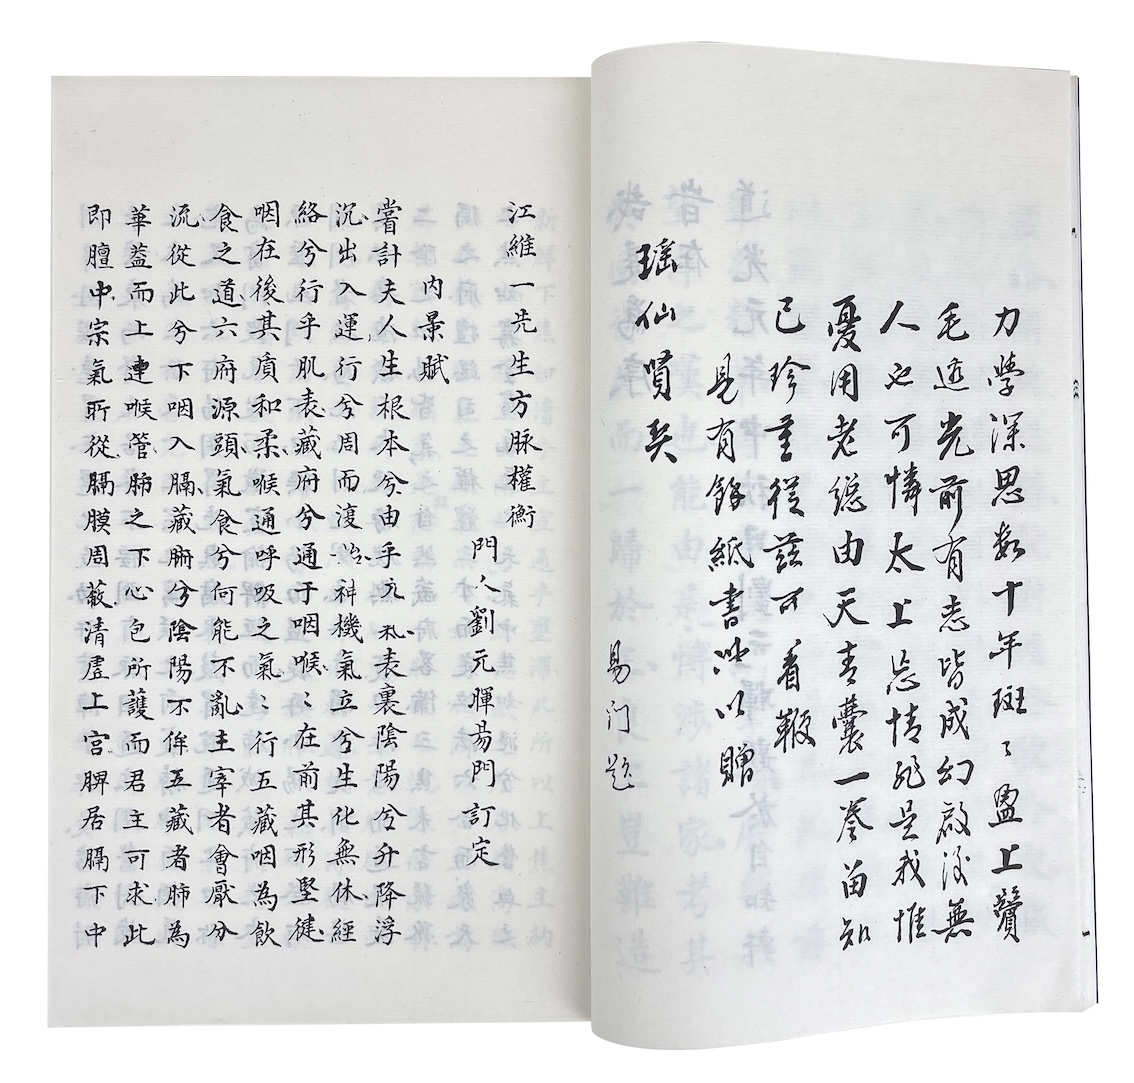 力學深思數十年斑〻盈上鬢
毛透光前有志皆成幻啟後無
人也可憐太上忘情非是我惟
憂用老總由天青囊一卷留知
已珍重從茲可看鞭
見有餘紙書此以贈
瑤仙賢契
易門題
江維一先生方脉權衡
門人劉元暉昜門訂定
內景賦
嘗計夫人生根本兮由乎元炁表裏陰陽兮升降浮
沉出入運行兮周而復始神機氣立兮生化無休經
絡兮行乎肌表藏府兮通于咽喉〻在前其形堅健
咽在後其質和柔喉通呼吸之氣〻行五藏咽為飲
食之道六府源頭氣食兮何能不亂主宰者會厭分
流從此兮下咽入膈藏腑兮陰陽不侔五藏者肺為
華蓋而上連喉管肺之下心包所護而君主可求此
即膻中宗氣所從膈膜周蔽清虛上宮脾居膈下中